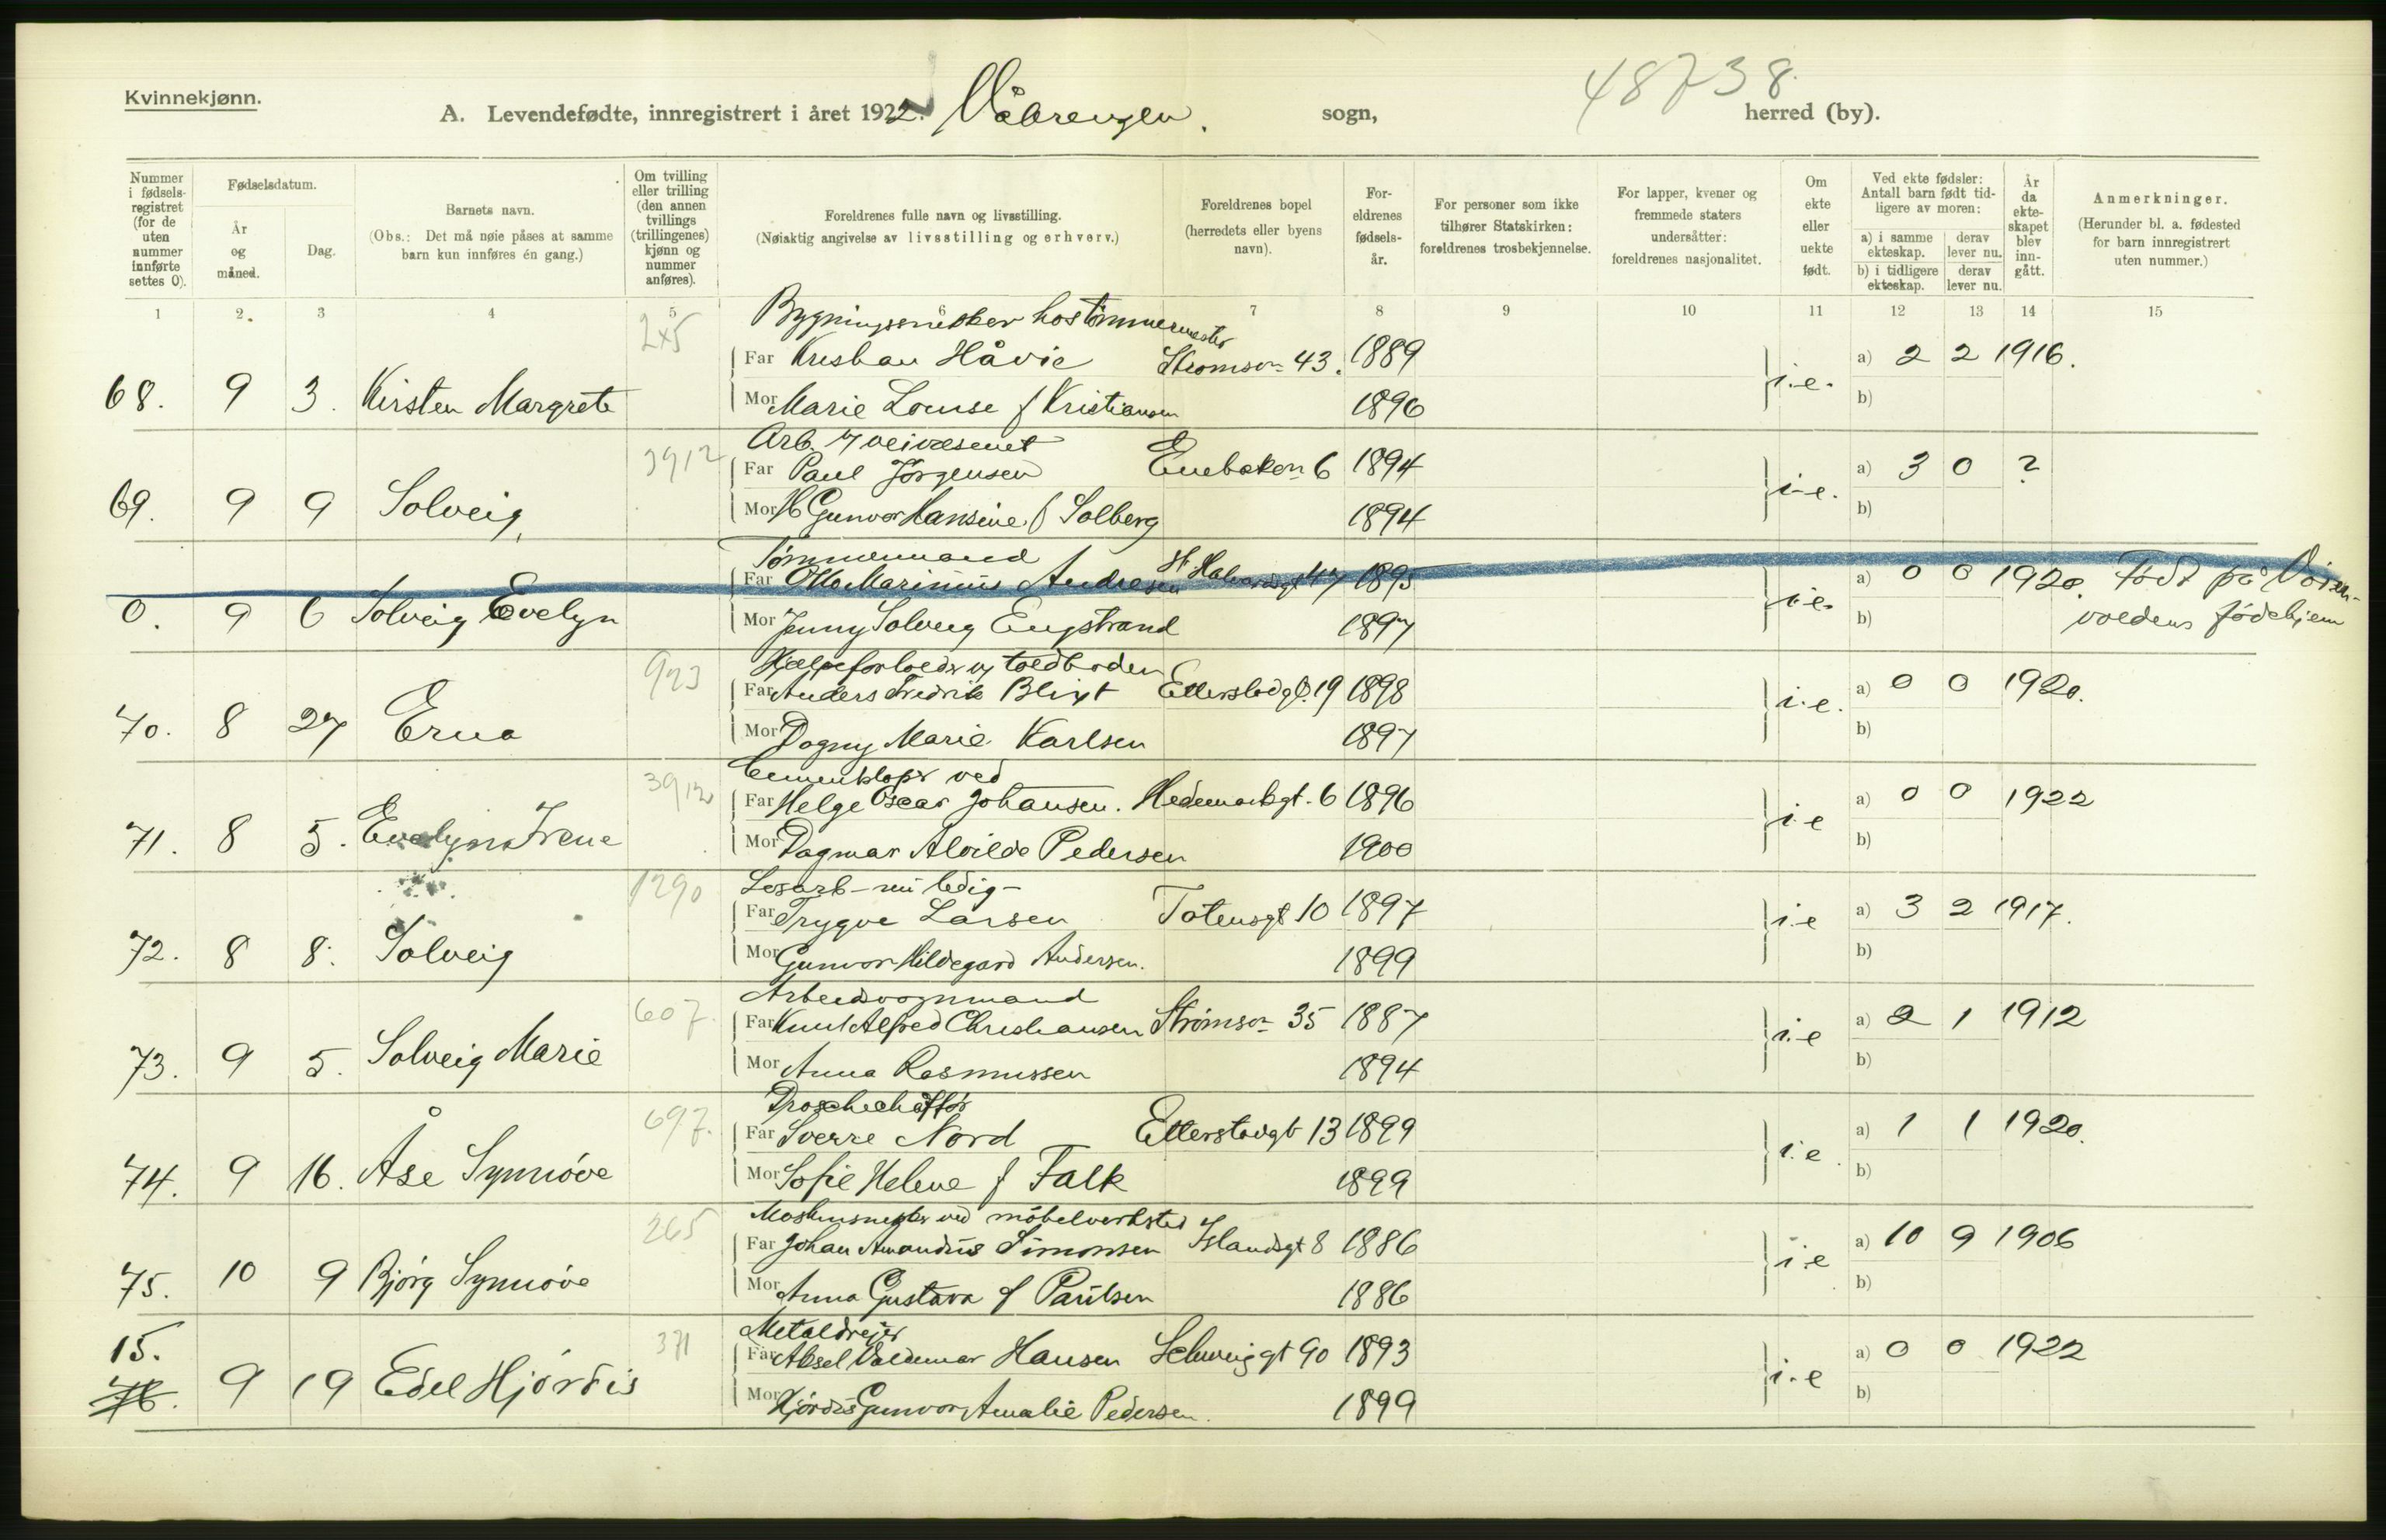 Kvinnekjønn.
48738.
A. Levendefødte, innregistrert i året 1922. Vålerengen. sogn, herred (by).
Nummer i fødselsregistret (for de uten nummer innførte settes 0).
Fødselsdatum.
År og måned.
Dag.
Barnets navn.
(Obs.: Det må nøie påses at samme barn kun innføres én gang.)
Om tvilling eller trilling (den annen tvillings (trillingenes) kjønn og nummer anføres).
Foreldrenes fulle navn og livsstilling.
(Nøiaktig angivelse av livsstilling og erhverv.)
Foreldrenes bopel (herredets eller byens navn).
Foreldrenes fødselsår.
For personer som ikke tilhører Statskirken: foreldrenes trosbekjennelse.
For lapper, kvener og fremmede staters undersåtter: foreldrenes nasjonalitet.
Om ekte eller uekte født.
Ved ekte fødsler: Antall barn født tidligere av moren:
a) i samme ekteskap. derav lever nu.
b) i tidligere ekteskap. derav lever nu.
År da ekteskapet blev inngått.
Anmerkninger.
(Herunder bl. a. fødested for barn innregistrert uten nummer.)
1 2. 3 4 5 6 7 8 9 10 11 12 13 14 15
245 Bygningssnekker hos tømmermester
Far Kristian Håvie Strømsv. 43. 1889 a) 2 2 1916.
68. 9 3. Kirsten Margrete Mor Marie Louise f Kristiansen 1896 i.e. b)
3912 Arb. v veivæsenet
Far Paul Jørgensen Enebakv. 6 1894 a) 3 0 ?
69. 9 9 Solveig, Mor Gunvor Hansine f Solberg 1894 i.e. b)
Tømmermand
Far Otto Marinius Andresen St. Halvardsgt 47 1895 a) 0 0 1920. Født på Voien-
0. 9 6 Solveig Evelyn Mor Jenny Solveig Engstrand 1897 i.e. b) voldens fødehjem
923 Hjelpeforloeder v toldboden
Far Anders Fredrik Blixt Etterstadgt. 19 1898 a) 0 0 1920.
70. 8 27 Erna Mor Dagny Marie Karlsen 1897 i.e. b)
3912 Cementstøper ved
Far Helge Oscar Johansen. Hedemarksgt. 6 1896 a) 0 0 1922
71. 8 5. Evelyn Irene Mor Dagmar Alvilde Pedersen 1900 i.e b)
1290 Løsarb - nu ledig -
Far Trygve Larsen Totensgt 10 1897 a) 3 2 1917.
72. 8 8. Solveig Mor Gunvor Hildegard Andersen. 1899 i.e b)
607. Arbeidsvognmand
Far Knut Alfred Christiansen Strømsv. 35 1887 a) 2 1 1912
73. 9 5. Solveig Marie Mor Anna Rasmussen 1894 i.e b)
697. Droschechaffør
Far Sverre Nord Etterstadgt 13 1899 a) 1 1 1920.
74. 9 16. Åse Synnøve Mor Sofie Helene f Falk 1899 i.e. b)
265 Maskinsnekker ved møbelverksted
Far Johan Amandus Simonsen Islandsgt 8 1886 a) 10 9 1906
75. 10 9 Bjørg Synnøve Mor Anna Gustava f Paulsen 1886 i.e b)
15. 371 Metaldreier
Far Aksel Valdemar Hansen Schweigg gt 90 1893 a) 0 0 1922
76. 9 19 Edel Hjørdis Mor Hjørdis Gunvor Amalie Pedersen. 1899 i.e b)